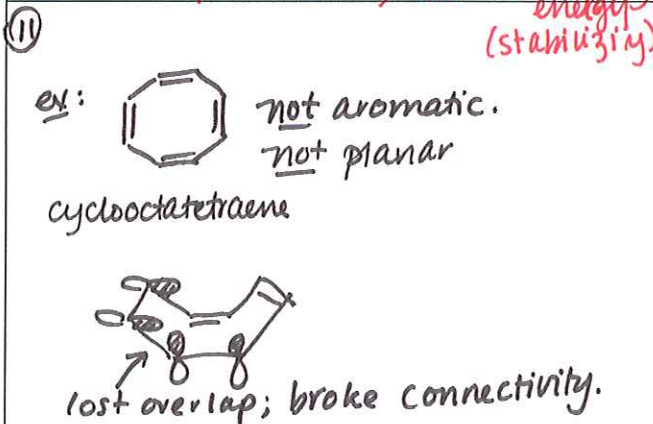 energy
(stability)
11
ex:
not aromatic.
not planar
cyclooctatetraene
lost overlap; broke connectivity.